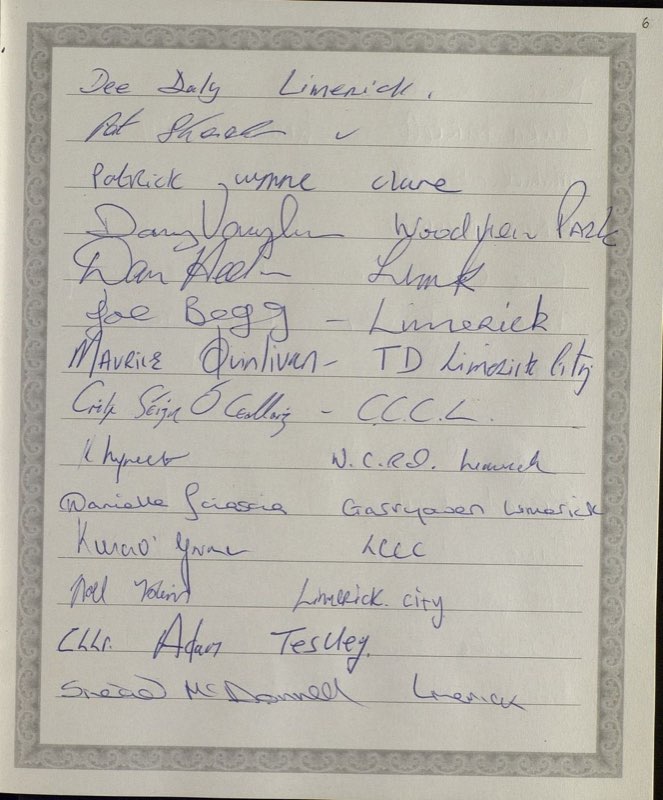 6
Dee Daly Limerick.
Pat
Patrick Wynne Clare
Dany Vaughan Woodview Park
Dan
Joe Begg - Limerick
Maurice Quinlivan - TD Limerick City
Séign Ó Ceallaig - C.C.C.L.
Limerick
Danielle Garryowen Limerick
LCCC
Noel Tobin Limerick city
Cllr. Adam Teskey.
Sinead McDonnell Limerick